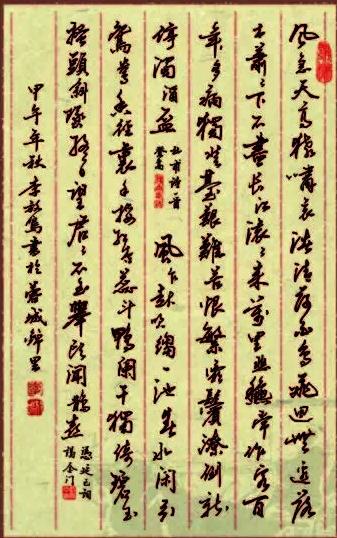 風急天高猿嘯哀渚清沙白鳥飛迴無邊落
木蕭〻下不盡長江滾〻來萬里悲穐常作客百
年多病獨登臺艱難苦恨繁霜鬢潦倒新
停濁酒盃
杜甫詩一首
登高
風乍起吹縐一池春水闲引
鴛鴦香徑裏手挼紅杏蕊斗鴨闌干獨倚碧玉
搔頭斜墜終日望君〻不至舉頭聞鵲喜
馮延巳詞
謁金门
甲午年秋李書於蓉城錦里